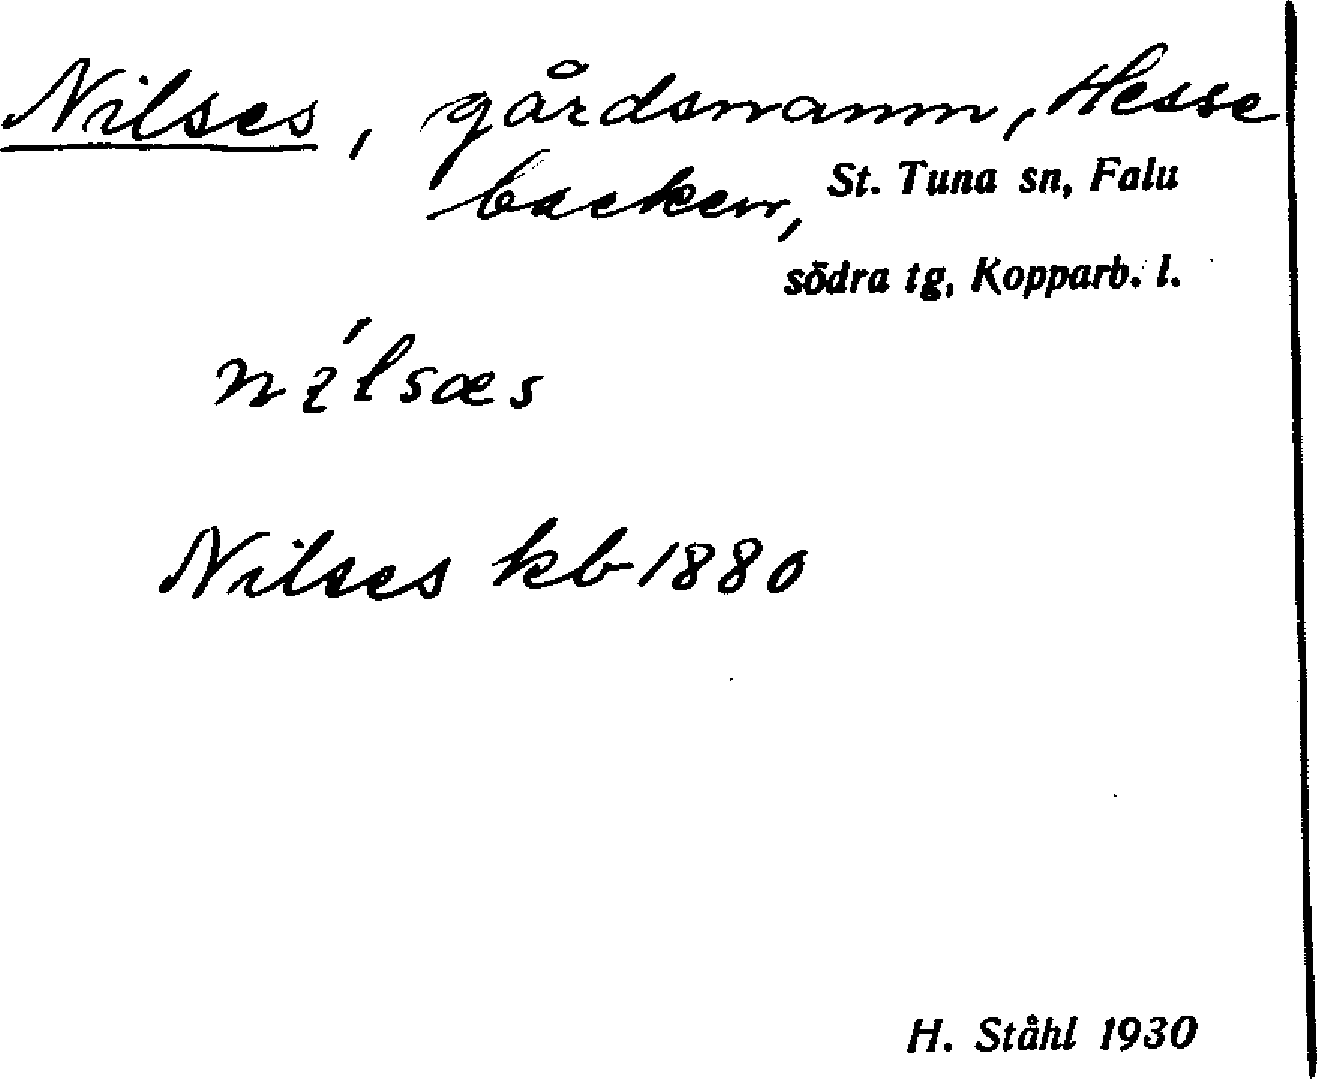 Nilses, gårdsnamn, Hesse
backen, St. Tuna sn, Falu
södra tg, Kopparb. l.
nílsæs
Nilses kb 1880
H. Ståhl 1930